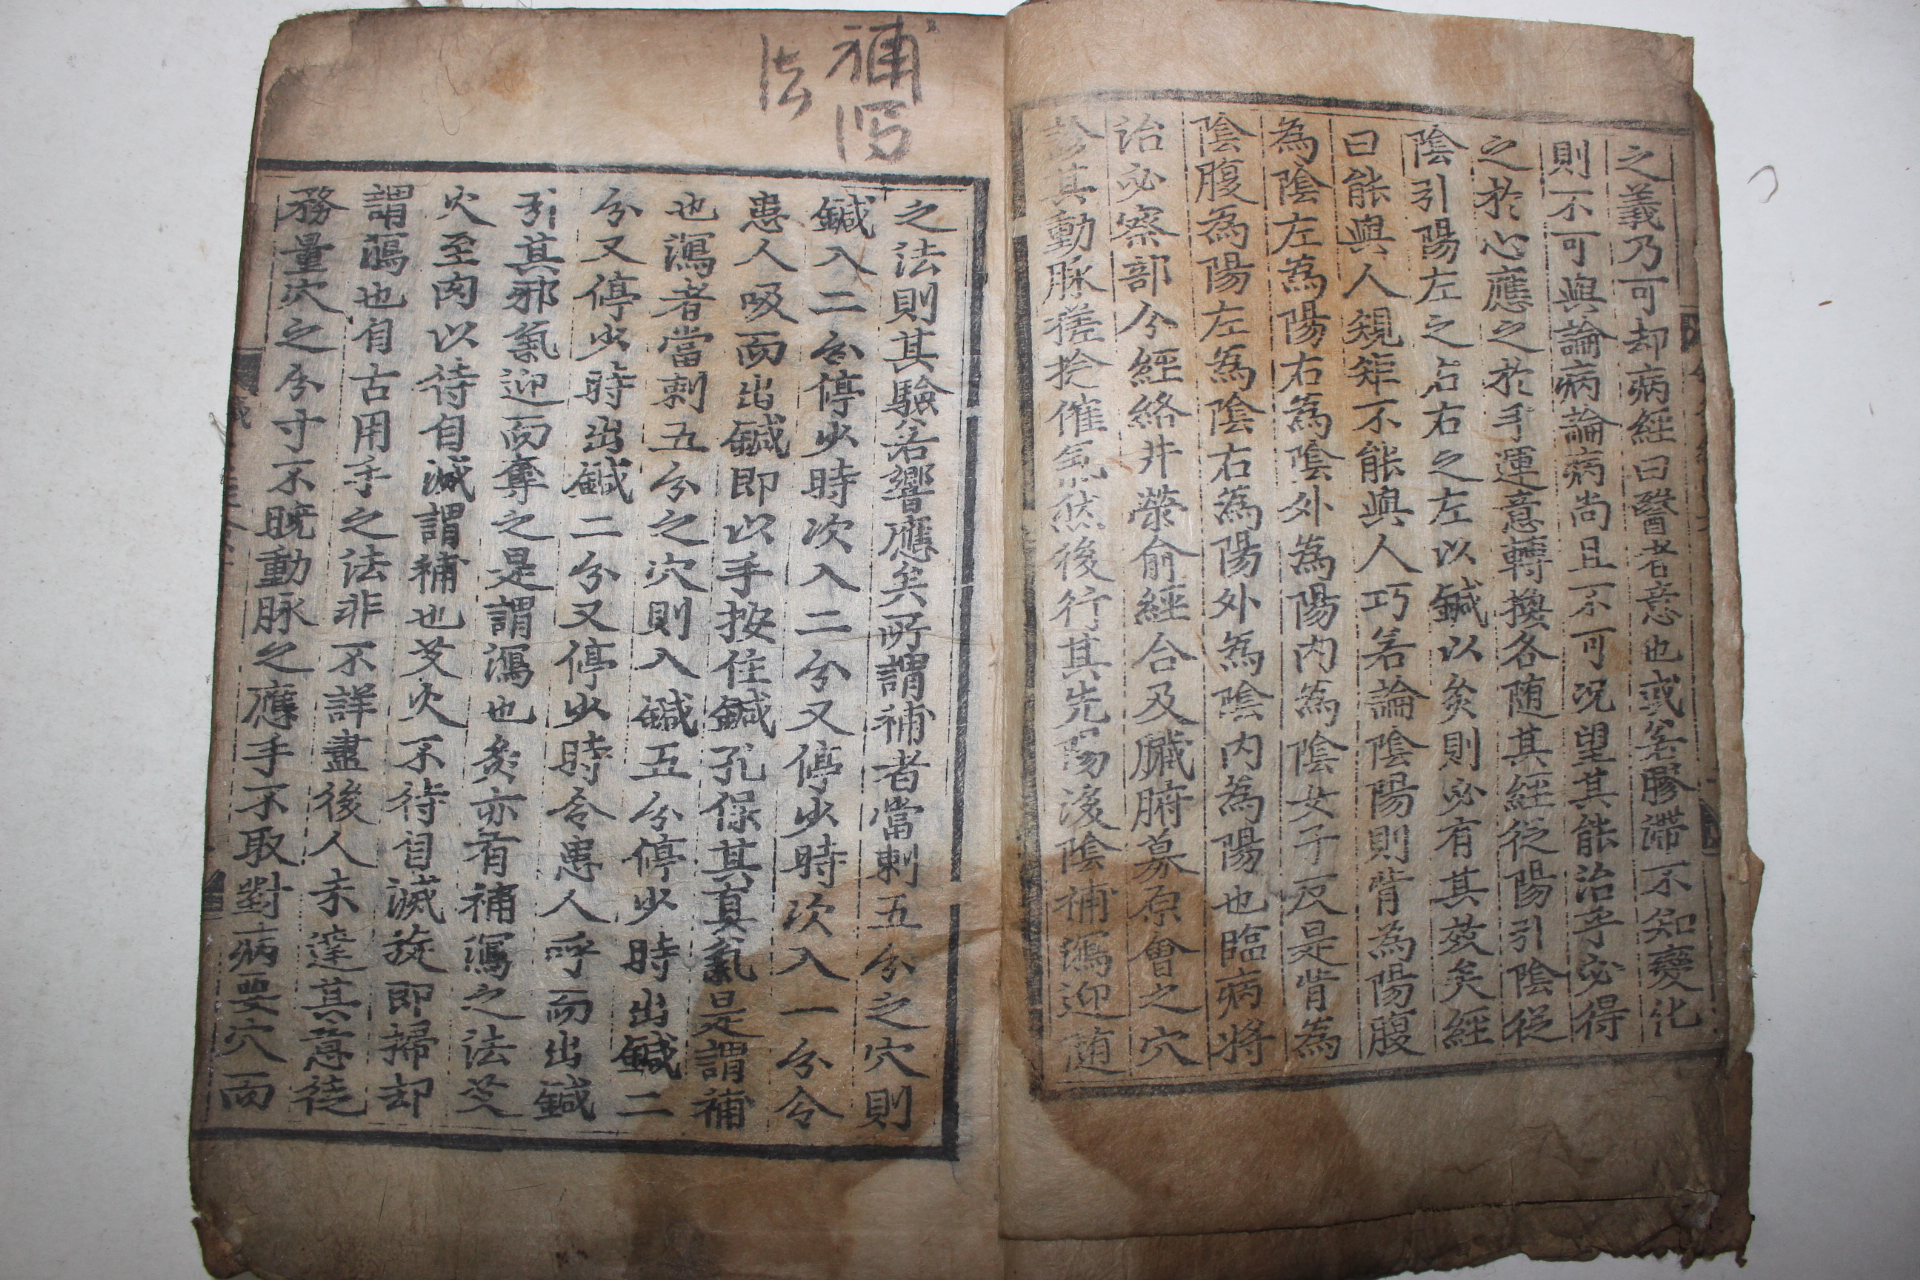 之義乃可却病經曰醫者意也或若膠滯不知變化
則不可與論病論病尚且不可況望其能治乎必得
之於心應之於手運意轉換各随其經從陽引陰從
陰引陽左之右右之左以鍼以灸則必有其效矣經
曰能與人規矩不能與人巧若論陰陽則背為陽腹
為陰左為陽右為陰外為陽內為陰女子反是背為
陰腹為陽左為陰右為陽外為陰内為陽也臨病將
治必察部分經絡井滎俞經合及臟腑募原會之穴
診其動脉搓捻催氣然後行其先陽後陰補瀉迎随
補瀉法
之法則其驗若響應矣所謂補者當刺五分之穴則
鍼入二分停少時次入二分又停少時次入一分令
患人吸而出鍼即以手按住鍼孔保其真氣是謂補
也瀉者當刺五分之穴則入鍼五分停少時出鍼二
分又停少時出鍼二分又停少時令患人呼而出鍼
引其邪氣迎而奪之是謂瀉也灸亦有補瀉之法艾
火至肉以待自滅謂補也艾火不待自滅旋即掃却
謂瀉也自古用手之法非不詳盡後人未達其意徒
務量穴之分寸不曉動脉之應手不取對病要穴而